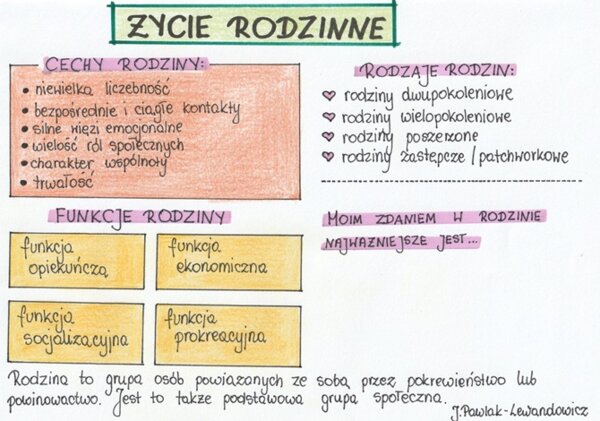 ŻYCIE RODZINNE
CECHY RODZINY:
• niewielka liczebność
• bezpośrednie i ciągłe kontakty
• silne więzi emocjonalne
• wielość ról społecznych
• charakter wspólnoty
• trwałość
RODZAJE RODZIN:
rodziny dwupokoleniowe
rodziny wielopokoleniowe
rodziny poszerzone
rodziny zastępcze / patchworkowe
FUNKCJE RODZINY
funkcja
opiekuńcza
funkcja
ekonomiczna
funkcja
socjalizacyjna
funkcja
prokreacyjna
MOIM ZDANIEM W RODZINIE
NAJWAŻNIEJSZE JEST...
Rodzina to grupa osób powiązanych ze sobą przez pokrewieństwo lub
powinowactwo. Jest to także podstawowa grupa społeczna.
J.Pawlak-Lewandowicz